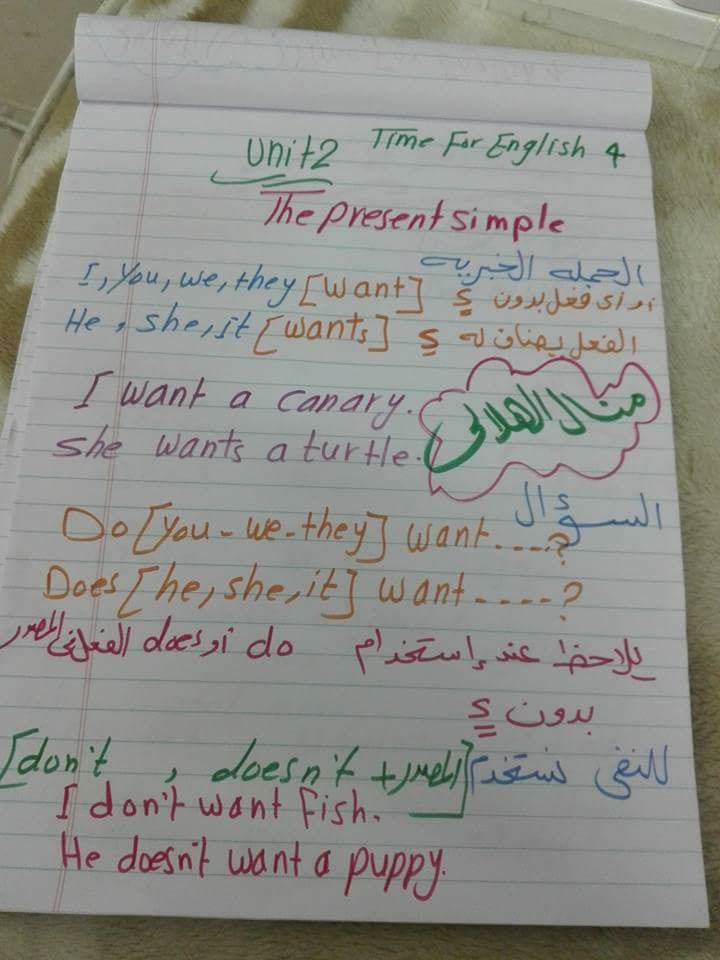 Unit 2 Time For English 4
The present simple
الجمله الخبريه
I, you, we, they [want] أو أى فعل بدون s
He, she, it [wants] الفعل يضاف له s
I want a canary.
منال الهلالى
She wants a turtle.
السؤال
Do [you - we - they] want ....?
Does [he, she, it] want ....?
يلاحظ عند إستخدام do أو does الفعل فى المصدر
بدون s
للنفى نستخدم [don't , doesn't + المصدر]
I don't want fish.
He doesn't want a puppy.